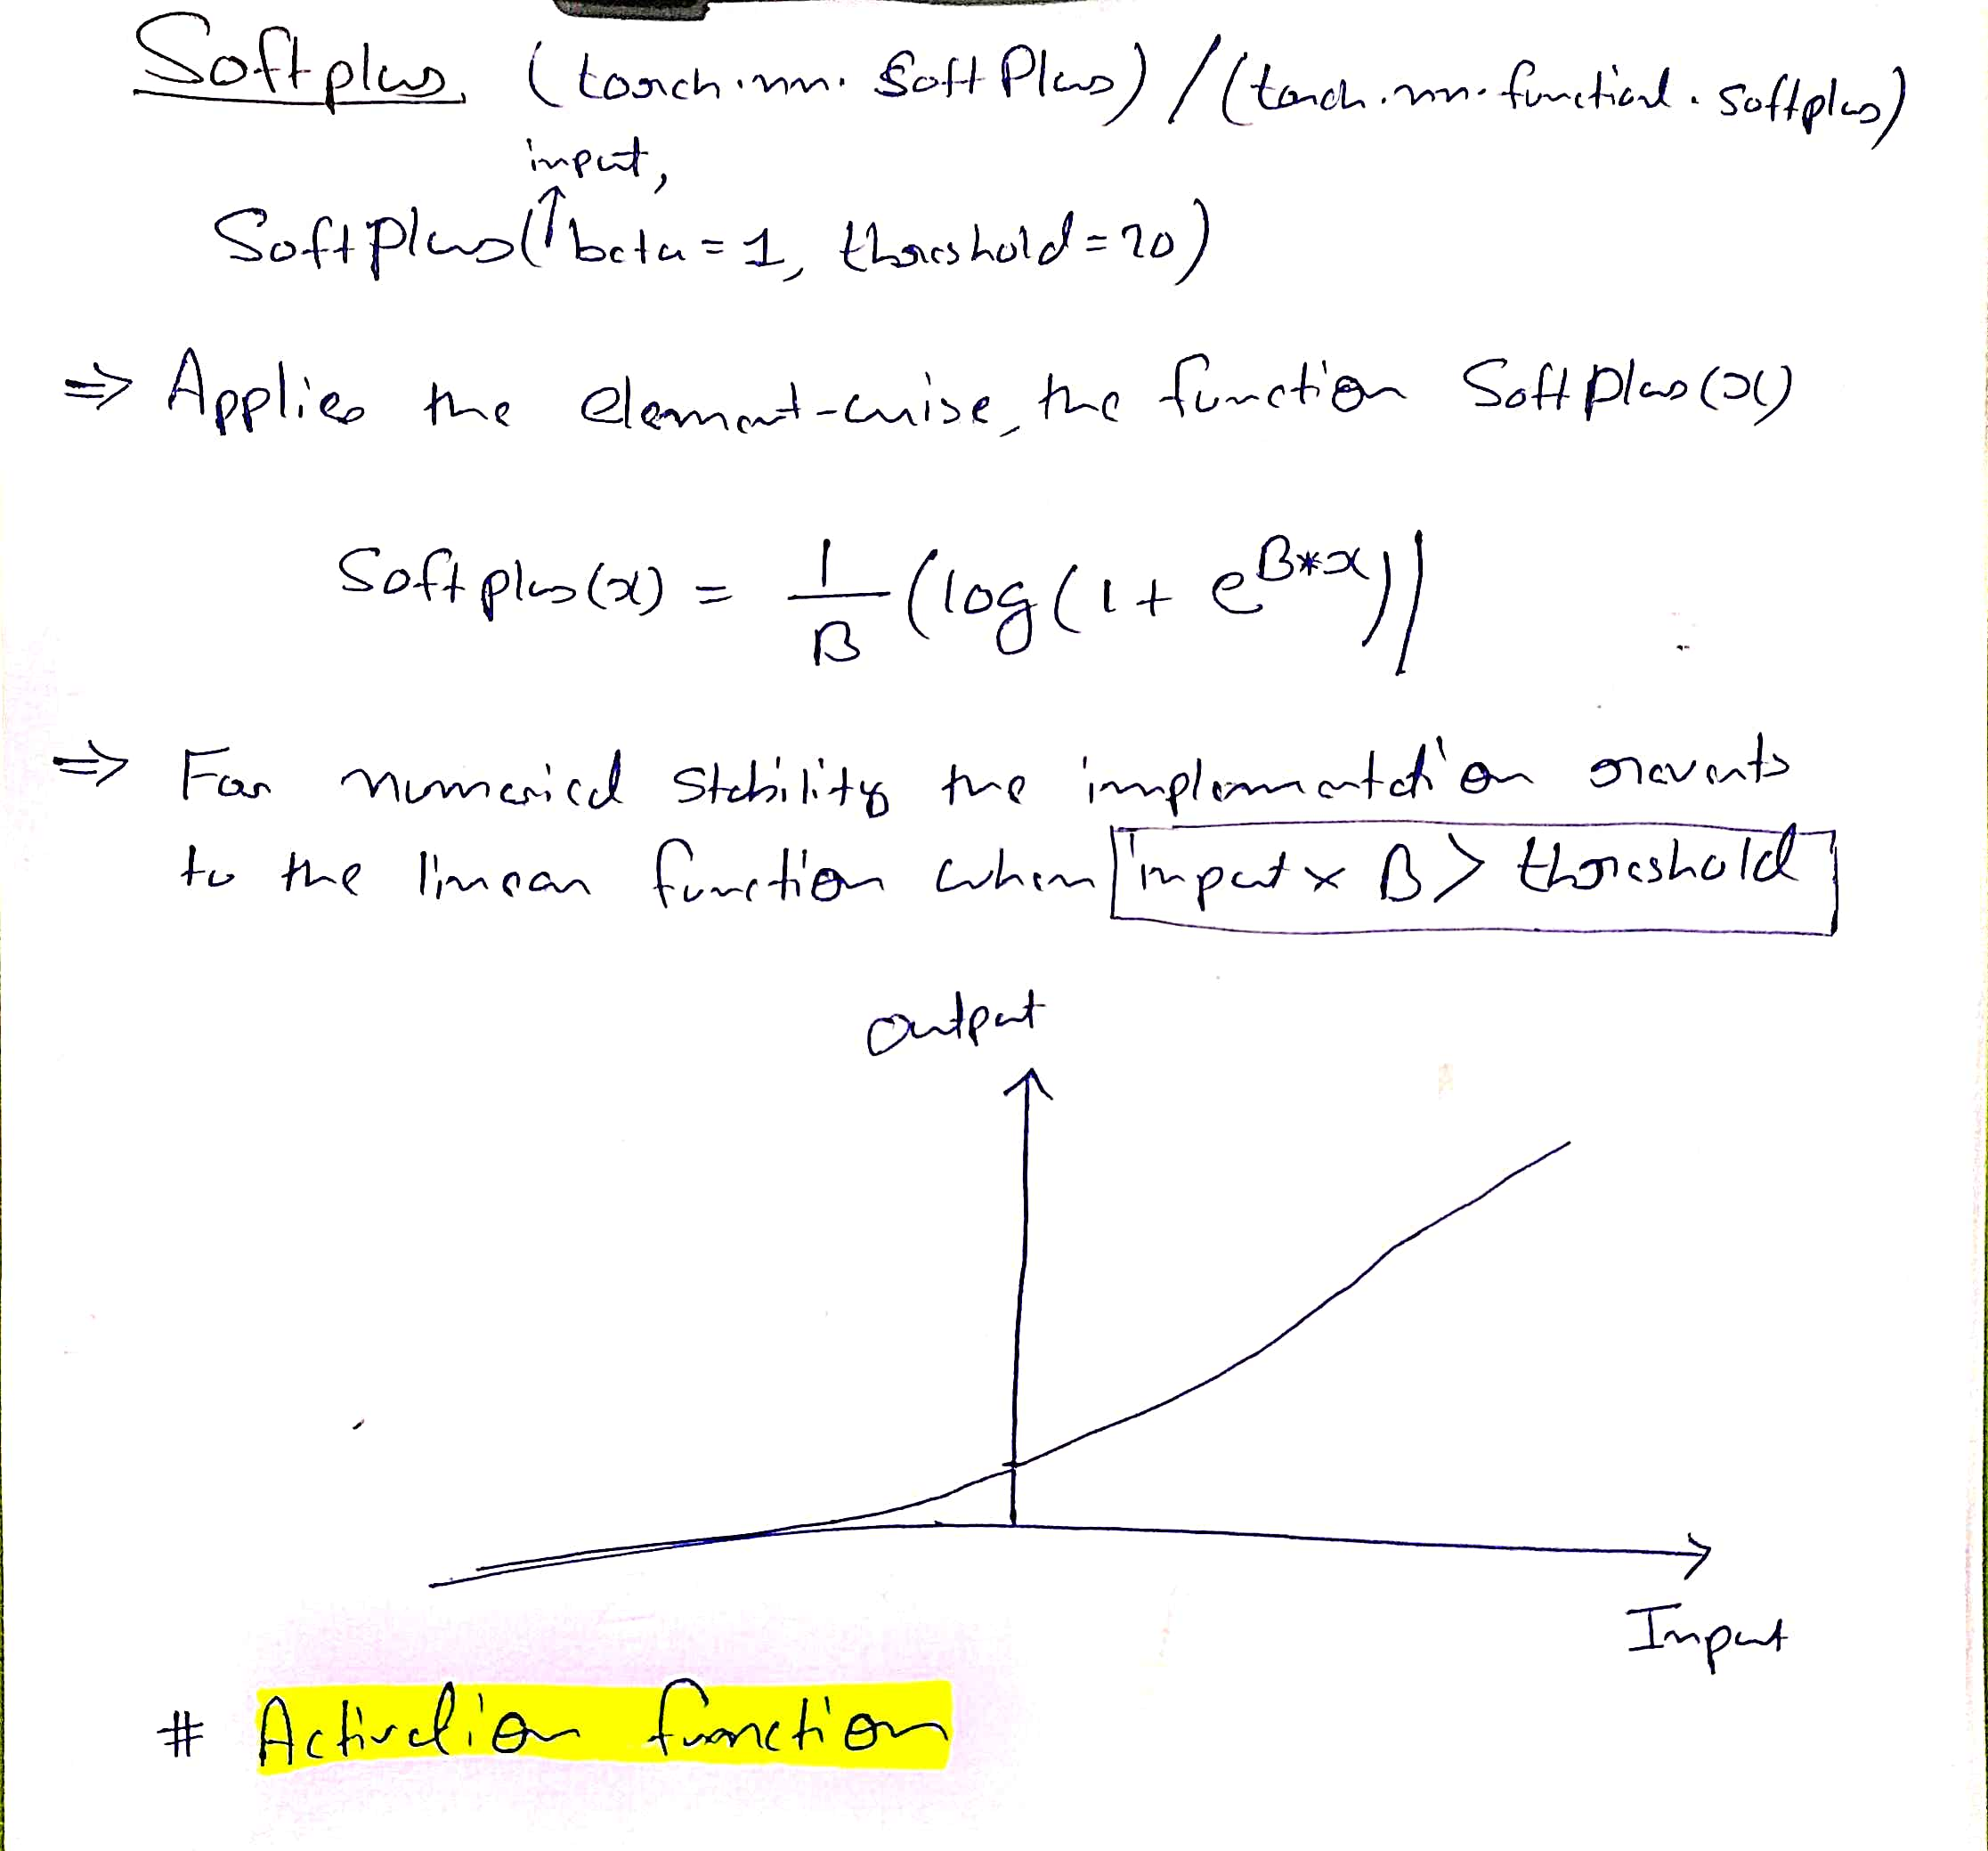 Softplus. (torch.nn. SoftPlus) / (torch.nn.functional.softplus)
input,
SoftPlus(↑beta=1, threshold=20)
⇒ Applies the element-wise, the function SoftPlus(x)
Softplus(x) = 1/β (log(1+ e^β*x))
⇒ For numerical stability the implementation reverts
to the linear function when input x β > threshold
Output
Input
# Activation function